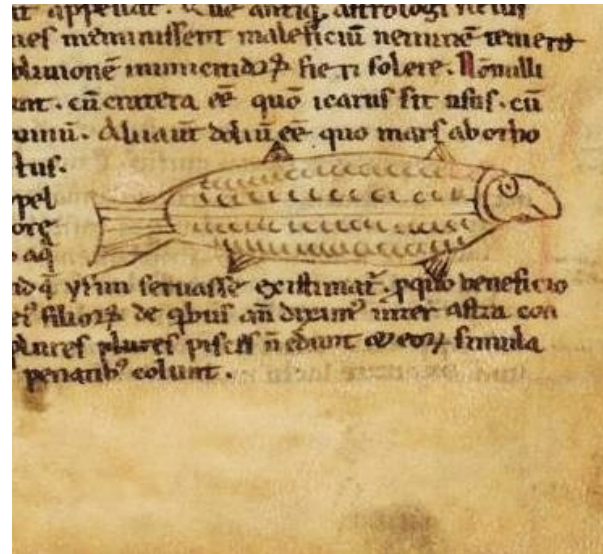 it appellat. Que antiq astrologi
nes meminissent maleficiū neminē temere
oblivionē inimicidoꝝ fieri solere. Nōnulli
unt. cū cratera eē quo icarus sit usus. cū
Aliaut doliū eē quo mars ab otho
tus.
pel
ore
o aq
idq̄ ysim servasse existimat. pquo beneficio
et filioꝝ de qbus an̄ diximꝰ inter astra con
plures plures pisces n̄ edunt & eoꝝ simula
penatibꝰ colunt.